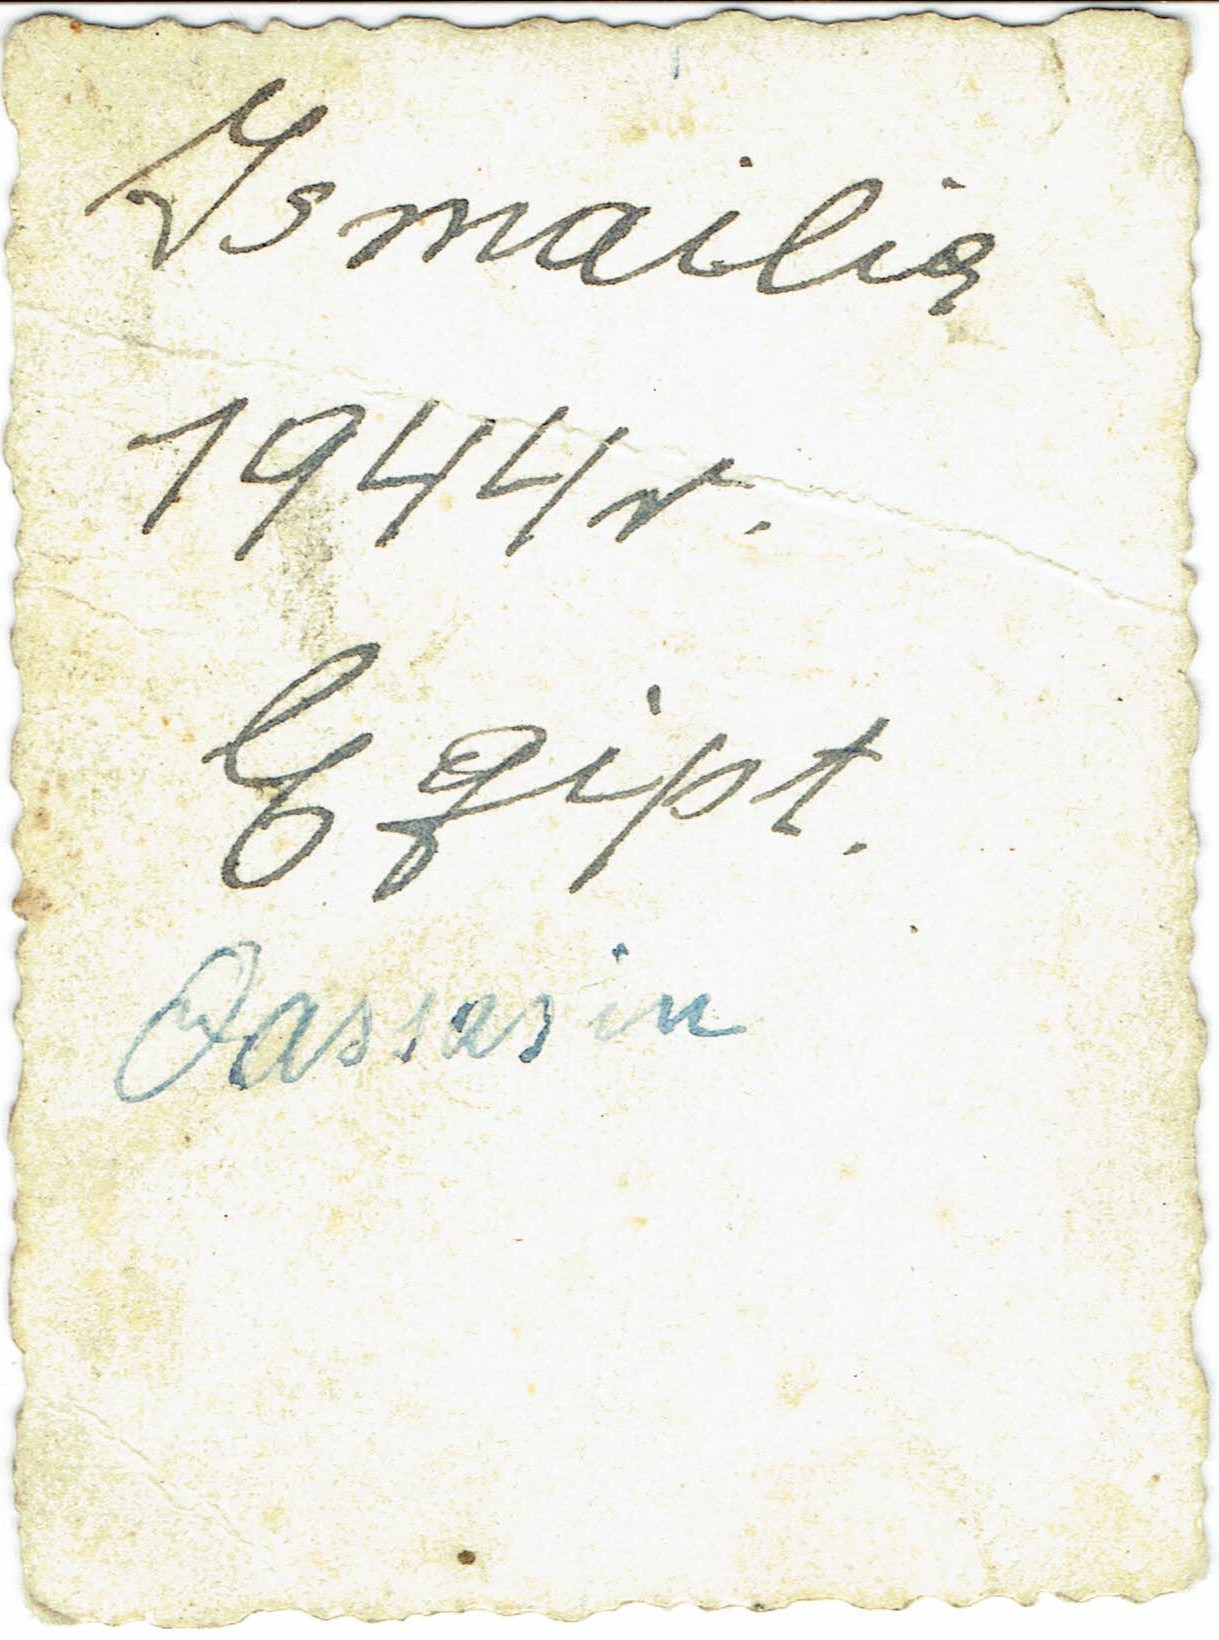 Ismailia
1944 r.
Egipt.
Qassasin